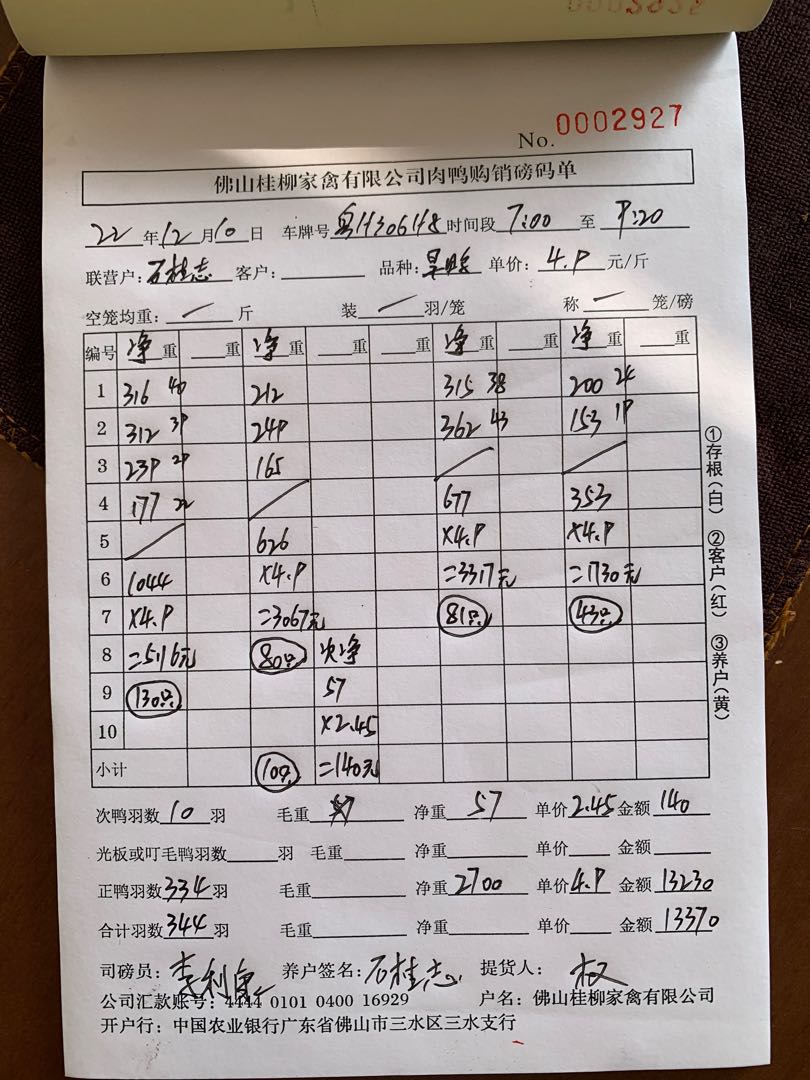 No. 0002927
佛山桂柳家禽有限公司肉鸭购销磅码单
22年12月10日 车牌号 粤H306H8 时间段 7:00 至 9:20
联营户:石桂志 客户: 品种:旱鸭 单价:4.9 元/斤
空笼均重:/斤 装/羽/笼 称/笼/磅
编号 净重 重 净重 重 重 净重 重 净重 重
1 316 40 212 315 38 200 24
2 312 39 249 362 43 153 19
3 239 29 165 / /
4 177 22 / 677 353
5 / 626 ×4.9 ×4.9
6 1044 ×4.9 =3317元 =1730元
7 ×4.9 =3067元 81只 43只
8 =5116元 80只 次净
9 130只 57
10 ×2.45
小计 10只 =140元
次鸭羽数10羽 毛重 净重57 单价2.45 金额140
光板或叮毛鸭羽数 羽 毛重 净重 单价 金额
正鸭羽数334羽 毛重 净重2700 单价4.9 金额13230
合计羽数344羽 毛重 净重 单价 金额13370
司磅员:李利 养户签名:石桂志 提货人:权
公司汇款账号:4444 0101 0400 16929 户名:佛山桂柳家禽有限公司
开户行:中国农业银行广东省佛山市三水区三水支行
①存根(白) ②客户(红) ③养户(黄)